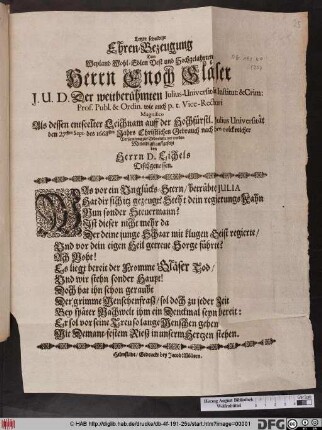 Letzte schuldige
Ehren-Bezeugung
Dem
Weyland Wohl-Edlen Vest und Hochgelahrten
Herrn Enoch Gläser
J. U. D. Der weitberühmten Julius-Universität Institut: & Crim:
Prof. Publ. & Ordin. wie auch p. t. Vice-Rectori
Magnifico
Als dessen entseelter Leichnam auf der Hochfürstl. Julius Universität
den 27sten Sept. des 1668sten Jahres Christlichen Gebrauch nach
von
Herrn D. Eichels
Tischgenossen.
WAs vor ein Unglücks-Stern / betrübte JULIA
Hat dir sich itz gezeugt! Steht dein regierungs Kahn
Nun sonder Steuermann?
Ist dieser nicht mehr da
Der deine junge Schaar mit klugen Geist regierte /
Und vor dein eigen Heil getreue Sorge führte?
Ach Wehe!
Es liegt bereit der Fromme Gläser Tod /
Und wir stehn sonder Haupt!
Doch hat ihn schon geraubt
Der grimme Menschenfraß / sol doch zu jeder Zeit
Bey später Nachwelt ihm ein Denckmal seyn bereit:
Er sol vor seine Treu solang Menschen gehen
Mit Demant-festem Rieß in unserm Hertzen stehen.
Helmstädt / Gedruckt bey Jacob Müllern.
Herzog August Bibliothek
Wolfenbüttel
© HAB http://diglib.hab.de/drucke/db-4f-191-25s/start.htm?image=00001
DFG